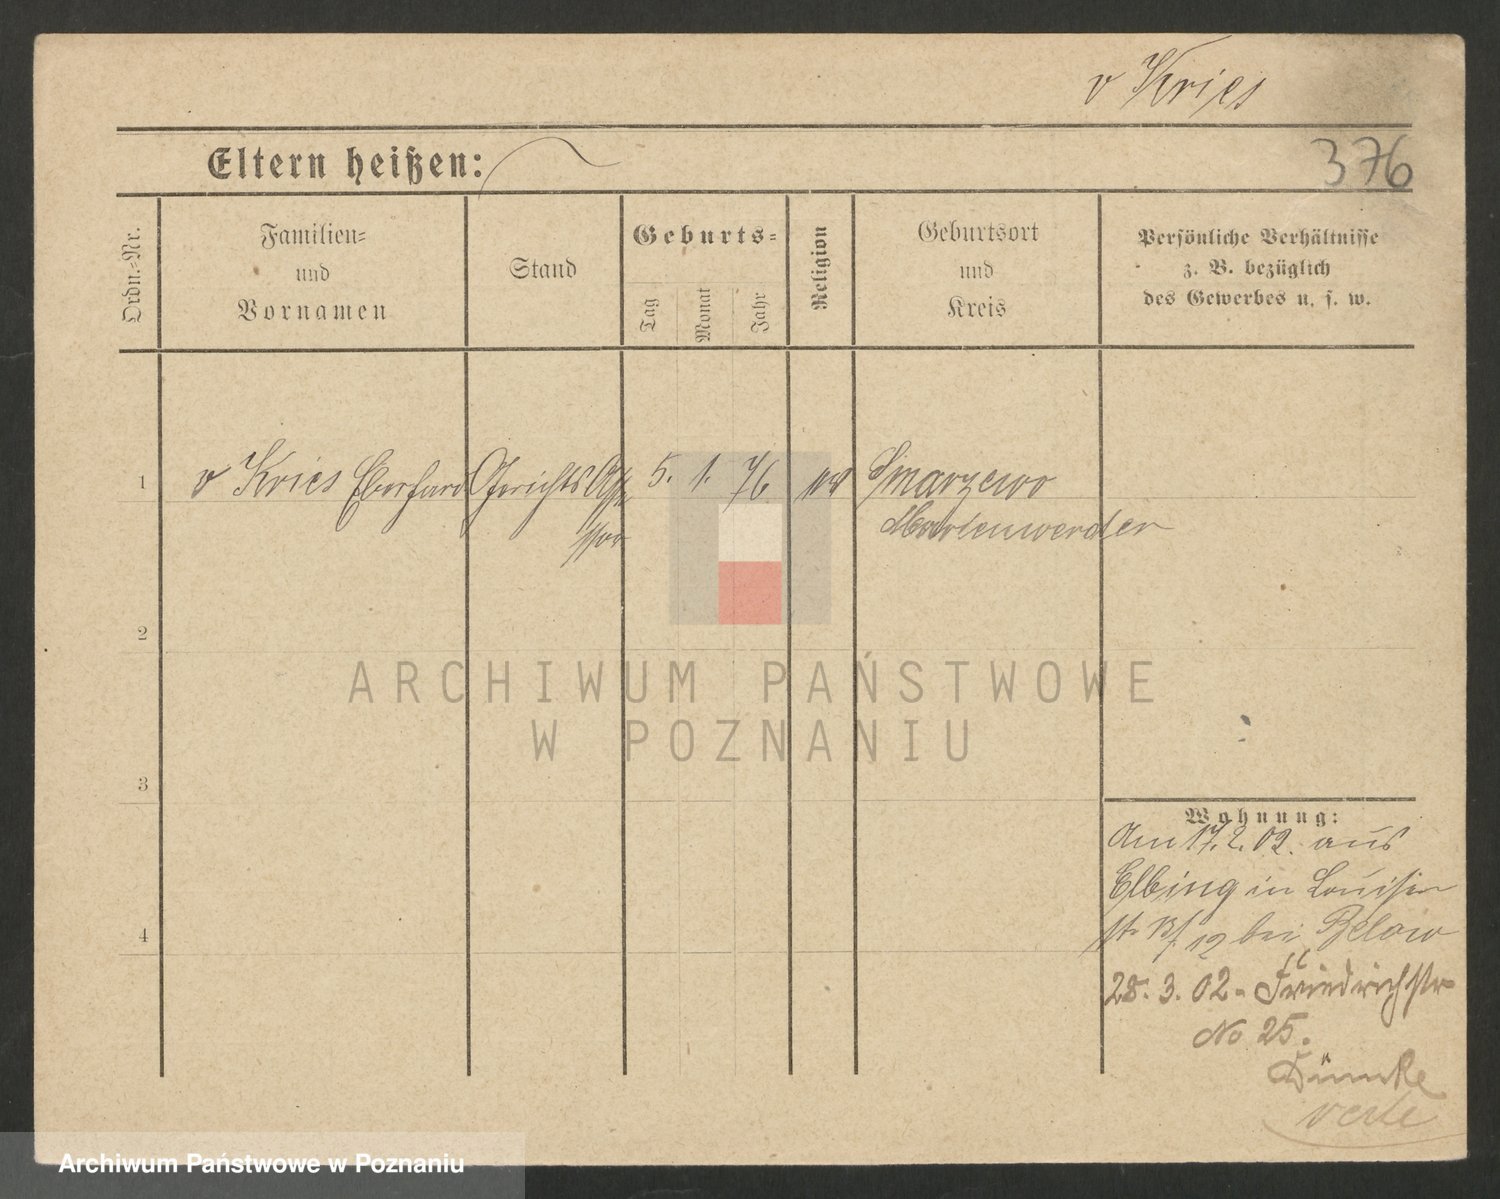 v Kries
Eltern heißen:
376
Ordn.-Nr.
Familien-
und
Vornamen
Stand
Geburts-
Tag
Monat
Jahr
Religion
Geburtsort
und
Kreis
Persönliche Verhältnisse
z. B. bezüglich
des Gewerbes u. s. w.
1
v Kries Eberhard Gerichts Asse 5. 1. 76 Smarzewo
ssor Marienwerder
2
ARCHIWUM PAŃSTWOWE
W POZNANIU
3
Wohnung:
Am 17. 2. 02. aus
Elbing in Louisen
str 12 bei Below
4
28. 3. 02 - Friedrichstr
No 25.
Dümke
verte
Archiwum Państwowe w Poznaniu